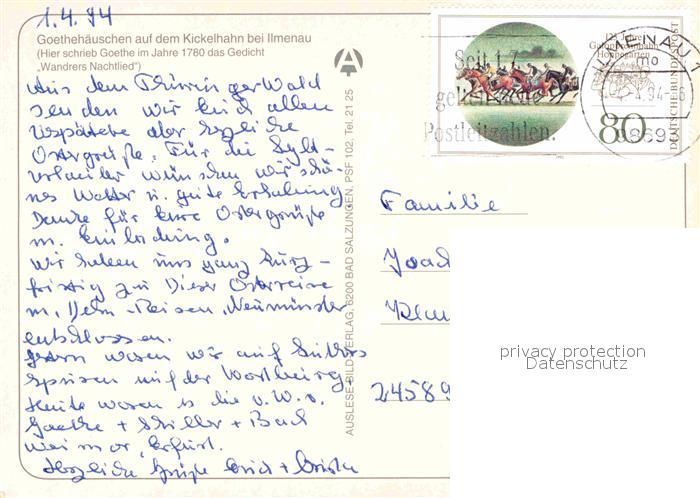 1.4.94
Goethehäuschen auf dem Kickelhahn bei Ilmenau
(Hier schrieb Goethe im Jahre 1780 das Gedicht
„Wandrers Nachtlied")
Aus dem Thüringer Wald
senden wir Euch allen
verspätete aber herzliche
Ostergrüße. Für die Sylt-
urlauber wünschen wir schö-
nes Wetter u. gute Erholung
Danke für Eure Ostergrüße
m. Einladung.
Wir haben uns ganz kurz-
fristig zu dieser Osterreise
m. Dehn-Reisen, Neumünster
entschlossen.
Gestern waren wir auf Luthers
Spuren auf der Wartburg
Heute waren es die v. W. v.
Goethe + Schiller + Bach
Weimar, Erfurt.
Herzliche Grüße Erich +
AUSLESE-BILD-VERLAG, 6200 BAD SALZUNGEN, PSF 102, Tel. 21 25
125 Jahre
Galopprennbahn
Hoppegarten
DEUTSCHE BUNDESPOST
80
Seit 1.7.
gelten neue
Postleitzahlen.
ILMENAU 1
mo
-4.94-
98693
Familie
Joach
24589
privacy protection
Datenschutz